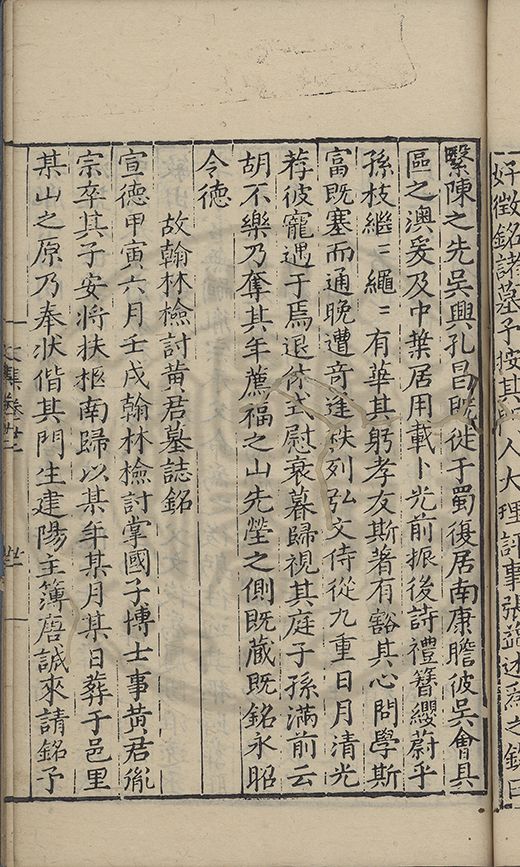 好徵銘諸墓予按其門人大理評事張
述為之銘曰
繄陳之先吳興孔昌既徙于蜀復居南康瞻彼吳會具
區之澳爰及中葉居用載卜光前振後詩禮簪纓蔚乎
孫枝繼〻繩〻有華其躬孝友斯著有豁其心問學斯
富既塞而通晚遭奇逢秩列弘文侍從九重日月清光
荐彼寵遇于焉退休式慰衰暮歸視其庭子孫滿前云
胡不樂乃奪其年薦福之山先塋之側既藏既銘永昭
令德
故翰林檢討黃君墓誌銘
宣德甲寅六月壬戌翰林檢討掌國子博士事黃君胤
宗卒其子安將扶柩南歸以某年某月某日葬于邑里
某山之原乃奉狀偕其門生建陽主簿唐誠來請銘予
文集卷廿二
廿一